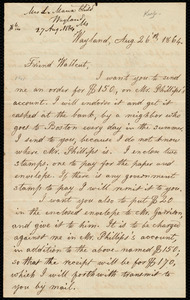 Mrs L. Maria Child
Wayland
27 Aug. 1864
Wayland, Aug 26th, 1864.
Friend Wallcut,
I want you to send
me an order for $150, on Mr. Phillips's
account. I will endorse it and get it
cashed at the bank, by a neighbor who
goes to Boston every day in the summer.
I send to you, because I do not know
where Mr. Phillips is. I enclose two
stamps; one to pay for the paper and
envelope. If there is any government
stamp to pay I will remit it next.
I want you also to put $20
in the enclosed envelope to Mr. Garrison
and give it to him. It is to be charged
against me in Mr. Phillips's account,
in addition to the above-named $150;
so that the receipt will be for $170,
which I will forthwith transmit to
you by mail.